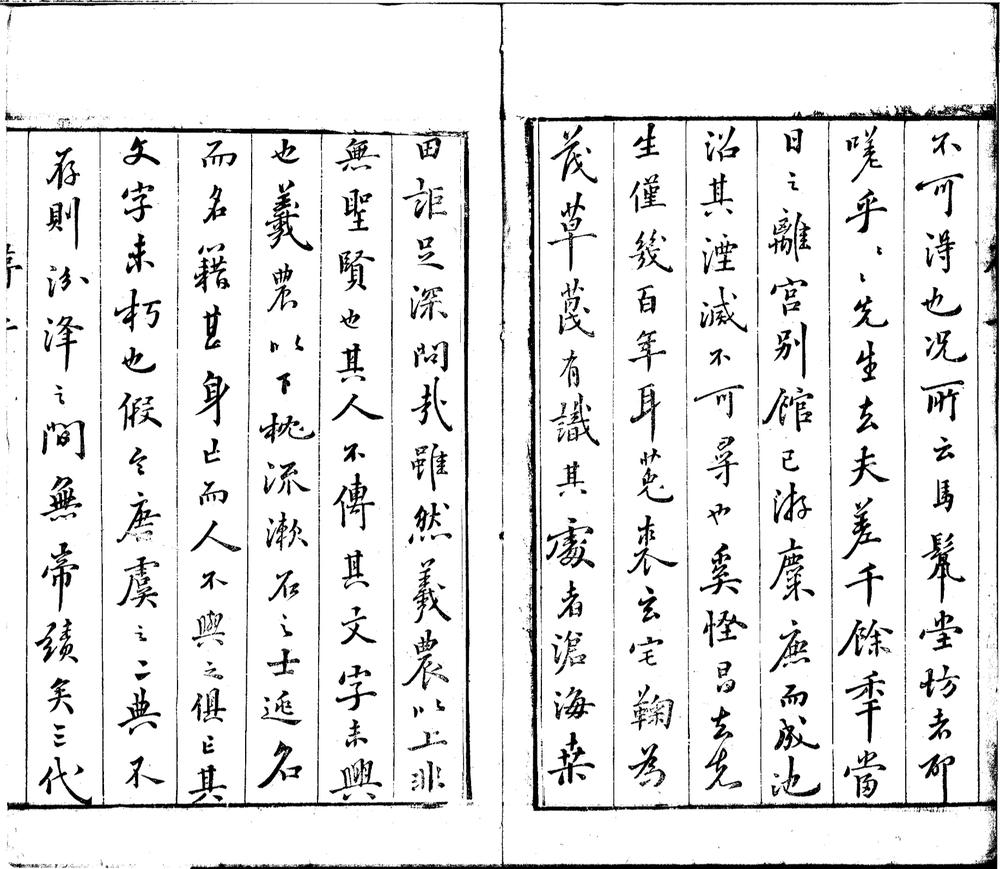 不可得也况所云馬鬣堂坊者邪
嗟乎〻先生去夫差千餘年當
日之離宮別館已游麋鹿而成池
沼其湮滅不可尋也奚怪昌去先
生僅幾百年耳菟裘玄宅鞠為
茂草蔑有識其處者滄海桑
田詎足深問哉雖然羲農以上非
無聖賢也其人不傳其文字未興
也羲農以下枕流漱石之士逃名
而名籍甚身亡而人不與之俱亡其
文字未朽也假令唐虞之二典不
存則汾澤之間無帝蹟矣三代